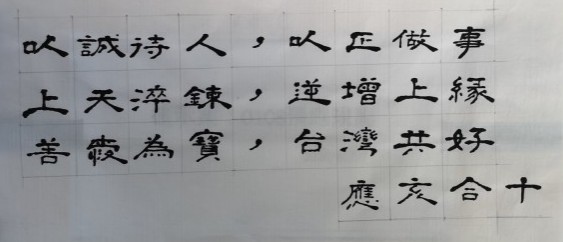 以誠待人，以正做事
上天淬鍊，逆增上緣
善愛為寶，台灣共好
應亥合十